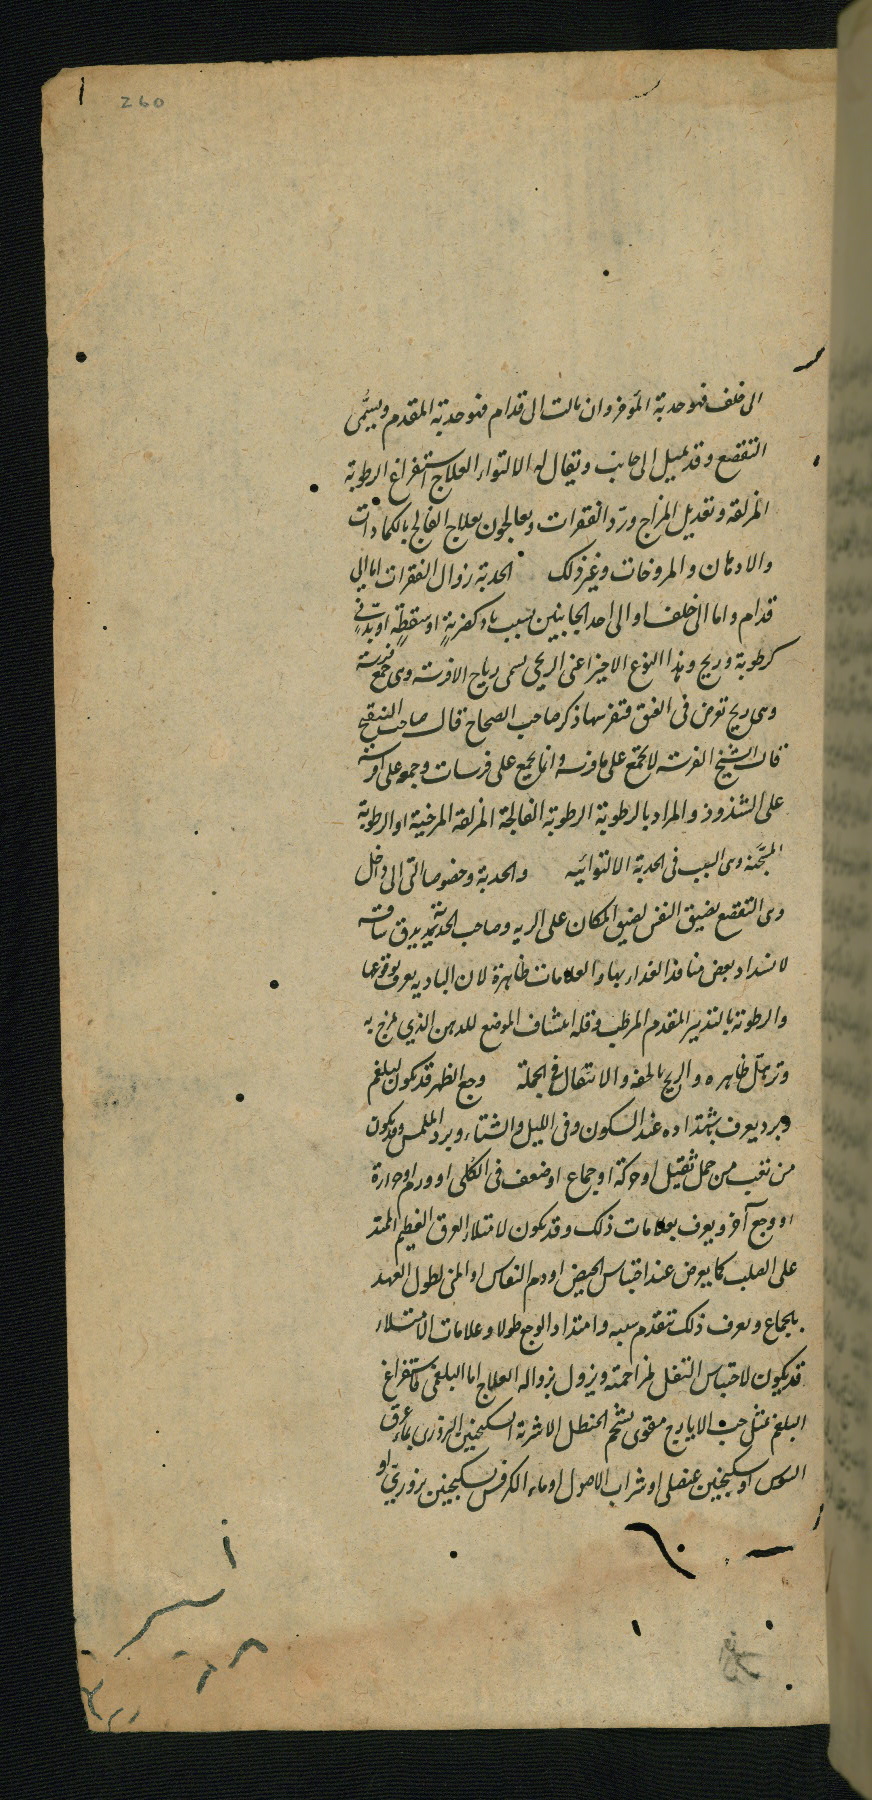 260
الى خلف فهو حدبة المؤخر وان مالت الى قدام فهو حدبة المقدم ويسمى
التقصع وقد تميل الى جانب ويقال له الالتواء العلاج استفراغ الرطوبة
المزلقة وتعديل المزاج ورد الفقرات ويعالجون بعلاج الفالج بالكمادات
والادهان والمروخات وغير ذلك الحدبة زوال الفقرات اما الى
قدام واما الى خلف او الى احد الجانبين بسبب باد كضربةٍ او سقطةٍ او بدنى
كرطوبة وريح وهذا النوع الاخير اعنى الريحى يسمى رياح الافرسه وهى جمع فرسة
وهى ريح تعرض فى العنق فتفرسها ذكر صاحب الصحاح قال صاحب التنقيح
قال الشيخ الفرسة لا تجمع على افرسه وانما تجمع على فرسات وجمعه على افرسة
على الشذوذ والمراد بالرطوبة الرطوبة الفالجة المزلقة المرخية او الرطوبة
المشنجة وهى السبب فى الحدبة الالتوائيه والحدبة وخصوصا التى الى داخل
وهى التقصع يضيق النفس لضيق المكان على الريه وصاحب الحدبة يدق ساقه
لانسداد بعض منافذ الغذاء بها والعلامات ظاهرة لان الباديه يعرف بوقوعها
والرطوبة بالتدبير المقدم المرطب وقلة انتشاف الموضع للدهن الذي مرخ به
وترهل ظاهره والريح بالخفة والانتقال فى الجملة وجع الظهر قد يكون لبلغم
وبرد يعرف باشتداده عند السكون وفى الليل والشتاء وبرد الملمس وقد يكون
من تعب من حمل ثقيل او حركة او جماع او ضعف فى الكلى او ورم او حرارة
او وجع آخر ويعرف بعلامات ذلك وقد يكون لامتلاء العرق العظيم الممتد
على الصلب كما يعرض عند احتباس الحيض او دم النفاس او المنى لطول العهد
بالجماع ويعرف ذلك بتقدم سببه وامتداد الوجع طولا وعلامات الامتلاء
قد يكون لاحتباس الثفل لمزاحمته ويزول بزواله العلاج اما البلغمى فاستفراغ
البلغم بمثل حب الايارج مقوى بشحم الحنظل الاشربة السكنجبين البزورى بماء عرق
السوس او سكنجبين عنصلى او شراب الاصول او ماء الكرفس بسكنجبين بزورىّ او